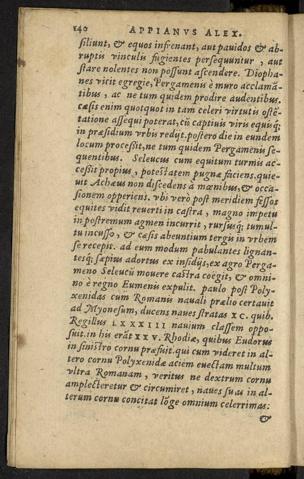 140 APPIANVS ALEX.
siliunt, & equos infrenant, aut pauidos & ab-
ruptis vinculis fugientes persequuntur, aut
stare nolentes non possunt ascendere. Diopha-
nes vicit egregie, Pergamenis è muro acclamā-
tibus, ac ne tum quidem prodire audentibus.
cæsis enim quotquot in tam celeri virtutis ostē-
tatione assequi poterat, cū captiuis viris equisq;
in præsidium vrbis redijt. postero die in eundem
locum processit, ne tum quidem Pergamenis se-
quentibus. Seleucus cum equitum turmis ac-
cessit propius, potestatem pugnæ faciens. quie-
uit Achæus non discedens à mœnibus, & occa-
sionem opperiens. vbi verò post meridiem fessos
equites vidit reuerti in castra, magno impetu
in postremum agmen incurrit, rursusq; tumul-
tu incusso, & cæsis abeuntium tergis in vrbem
se recepit. ad eum modum pabulantes lignan-
tesq; sæpius adortus ex insidijs, ex agro Perga-
meno Seleucū mouere castra coëgit, & omni-
no è regno Eumenis expulit. paulo post Poly-
xenidas cum Romanis nauali prælio certauit
ad Myonesum, ducens naues stratas XC. quib.
Regillus LXXXIII nauium classem oppo-
suit. in his erāt XXV. Rhodiæ, quibus Eudorus
in sinistro cornu præfuit. qui cum videret in al-
tero cornu Polyxenidæ aciem euectam multum
vltra Romanam, veritus ne dextrum cornu
amplecteretur & circumiret, naues suas in al-
terum cornu concitat lōge omnium celerrimas:
&